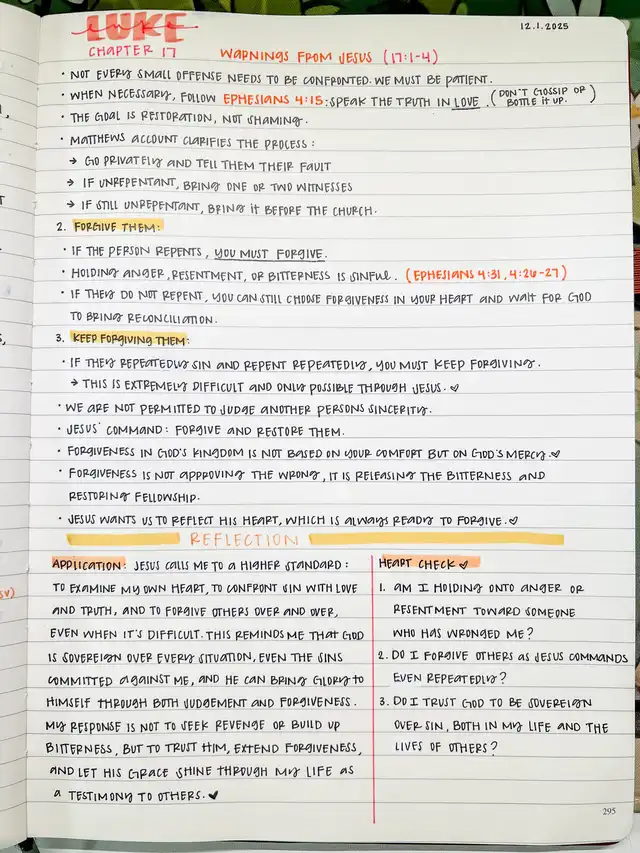 LUKE
luke
12.1.2025
CHAPTER 17
WARNINGS FROM JESUS (17:1-4)
• NOT EVERY SMALL OFFENSE NEEDS TO BE CONFRONTED. WE MUST BE PATIENT.
• WHEN NECESSARY, FOLLOW EPHESIANS 4:15: SPEAK THE TRUTH IN LOVE. (DON'T GOSSIP OR BOTTLE IT UP.)
• THE GOAL IS RESTORATION, NOT SHAMING.
• MATTHEWS ACCOUNT CLARIFIES THE PROCESS:
→ GO PRIVATELY AND TELL THEM THEIR FAULT
→ IF UNREPENTANT, BRING ONE OR TWO WITNESSES
→ IF STILL UNREPENTANT, BRING IT BEFORE THE CHURCH.
2. FORGIVE THEM:
• IF THE PERSON REPENTS, YOU MUST FORGIVE.
• HOLDING ANGER, RESENTMENT, OR BITTERNESS IS SINFUL. (EPHESIANS 4:31, 4:26-27)
• IF THEY DO NOT REPENT, YOU CAN STILL CHOOSE FORGIVENESS IN YOUR HEART AND WAIT FOR GOD
TO BRING RECONCILIATION.
3. KEEP FORGIVING THEM:
• IF THEY REPEATEDLY SIN AND REPENT REPEATEDLY, YOU MUST KEEP FORGIVING.
→ THIS IS EXTREMELY DIFFICULT AND ONLY POSSIBLE THROUGH JESUS. ♡
• WE ARE NOT PERMITTED TO JUDGE ANOTHER PERSONS SINCERITY.
• JESUS' COMMAND: FORGIVE AND RESTORE THEM.
• FORGIVENESS IN GOD'S KINGDOM IS NOT BASED ON YOUR COMFORT BUT ON GOD'S MERCY. ♡
• FORGIVENESS IS NOT APPROVING THE WRONG, IT IS RELEASING THE BITTERNESS AND
RESTORING FELLOWSHIP.
• JESUS WANTS US TO REFLECT HIS HEART, WHICH IS ALWAYS READY TO FORGIVE. ♡
REFLECTION
APPLICATION: JESUS CALLS ME TO A HIGHER STANDARD:
TO EXAMINE MY OWN HEART, TO CONFRONT SIN WITH LOVE
AND TRUTH, AND TO FORGIVE OTHERS OVER AND OVER,
EVEN WHEN IT'S DIFFICULT. THIS REMINDS ME THAT GOD
IS SOVEREIGN OVER EVERY SITUATION, EVEN THE SINS
COMMITTED AGAINST ME, AND HE CAN BRING GLORY TO
HIMSELF THROUGH BOTH JUDGEMENT AND FORGIVENESS.
MY RESPONSE IS NOT TO SEEK REVENGE OR BUILD UP
BITTERNESS, BUT TO TRUST HIM, EXTEND FORGIVENESS,
AND LET HIS GRACE SHINE THROUGH MY LIFE AS
A TESTIMONY TO OTHERS. ♥
HEART CHECK ♥
1. AM I HOLDING ONTO ANGER OR
RESENTMENT TOWARD SOMEONE
WHO HAS WRONGED ME?
2. DO I FORGIVE OTHERS AS JESUS COMMANDS
EVEN REPEATEDLY?
3. DO I TRUST GOD TO BE SOVEREIGN
OVER SIN, BOTH IN MY LIFE AND THE
LIVES OF OTHERS?
295